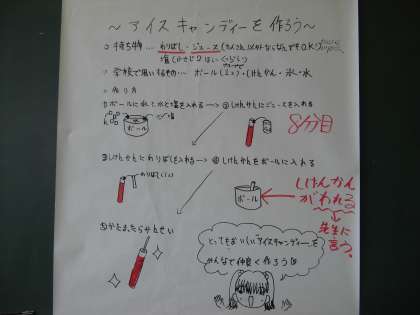 ～アイスキャンディーを作ろう～
○持ち物…わりばし・ジュース
塩
○学校で用いするもの…ボール・しけんかん・氷・水
○作り方
①ボールに氷と塩を入れる→②しけんかんにジュースを入れる
ボール
8分目
③しけんかんにわりばしを入れる→④しけんかんをボールに入れる
わりばし
ボール
しけんかん
がわれる
先生に
言う。
⑤かたまったらかんせい
とってもおいしいアイスキャンディーを
みんなで仲良く作ろう